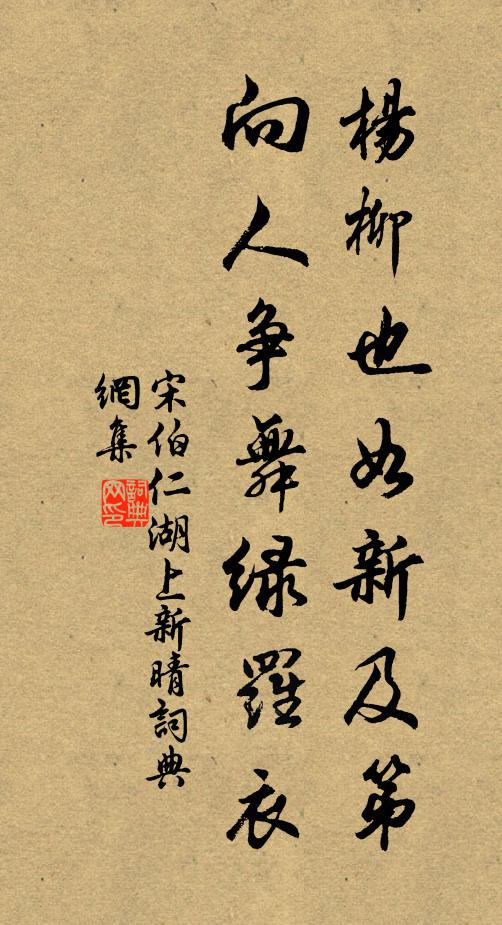 楊柳也如新及第
向人爭舞綠羅衣
宋伯仁湖上新晴詞典
網集
詞典
網印